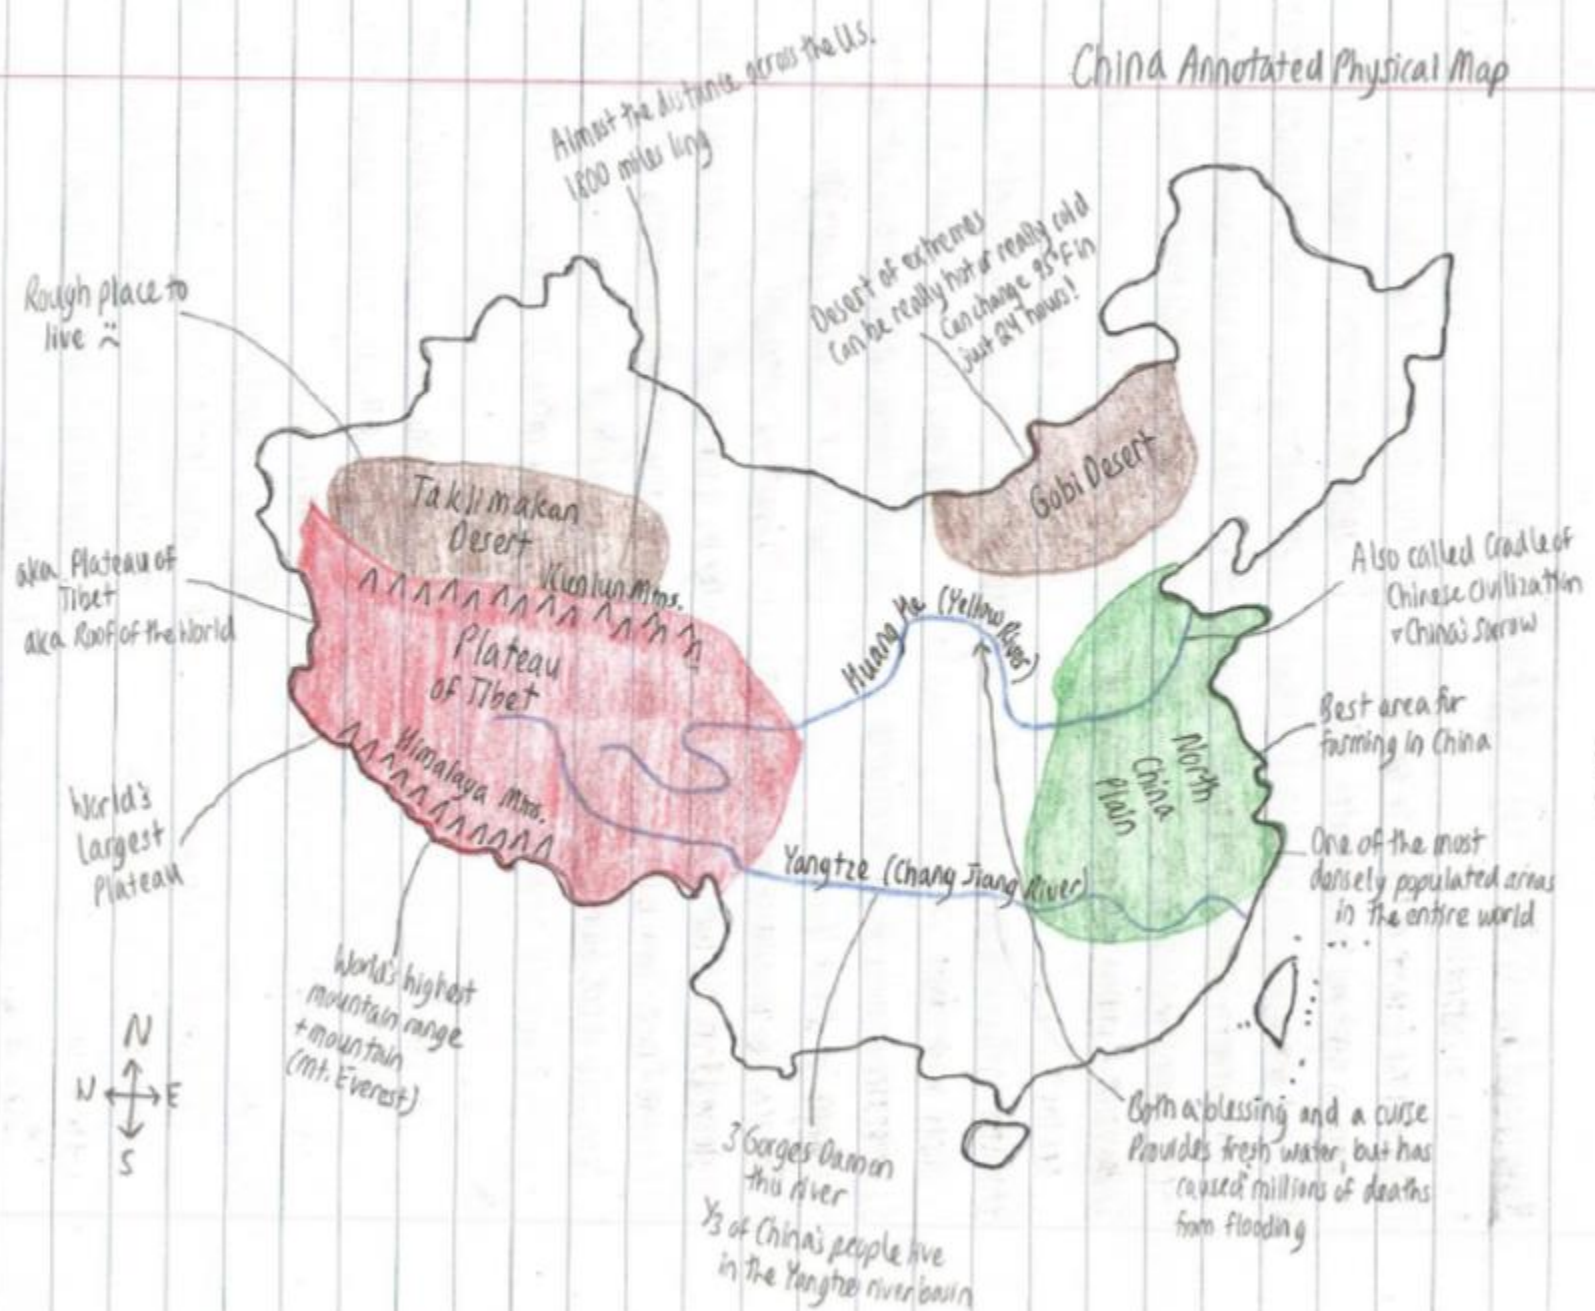 China Annotated Physical Map
Almost the distance across the U.S.
1800 miles ling
Desert of extremes
can be really hot or really cold
Can change 95°F in
just 24 hours!
Rough place to
live
Taklimakan
Desert
Gobi Desert
Kunlun Mtns.
aka Plateau of
Tibet
aka Roof of the World
Plateau
of Tibet
Huang He (Yellow River)
Also called Cradle of
Chinese Civilization
+ China's Sorrow
Best area for
farming in China
North
China
Plain
Himalaya Mtns.
World's
largest
Plateau
Yangtze (Chang Jiang River)
One of the most
densely populated areas
in the entire world
World's highest
mountain range
+ mountain
(Mt. Everest)
N
W E
S
3 Gorges Dam on
this river
1/3 of China's people live
in the Yangtze river basin
Both a blessing and a curse
Provides fresh water, but has
caused millions of deaths
from flooding